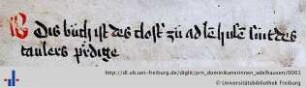 Dis bůch ist des closters zů adelhusen sint des
taulers p̄dige
http://dl.ub.uni-freiburg.de/diglit/prm_dominikanerinnen_adelhausen/0001
© Universitätsbibliothek Freiburg